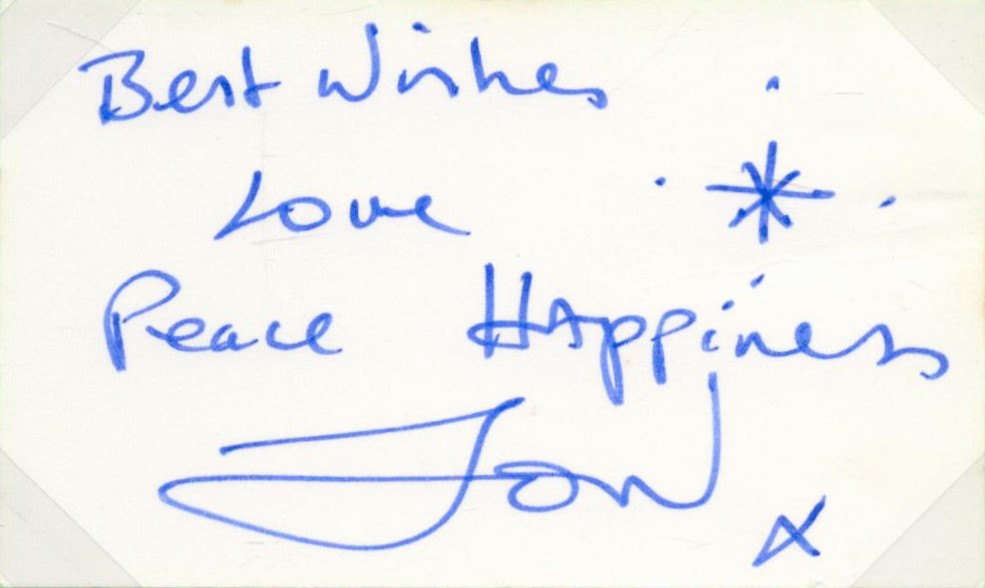 Best Wishes
Love
Peace Happiness
Jon
x